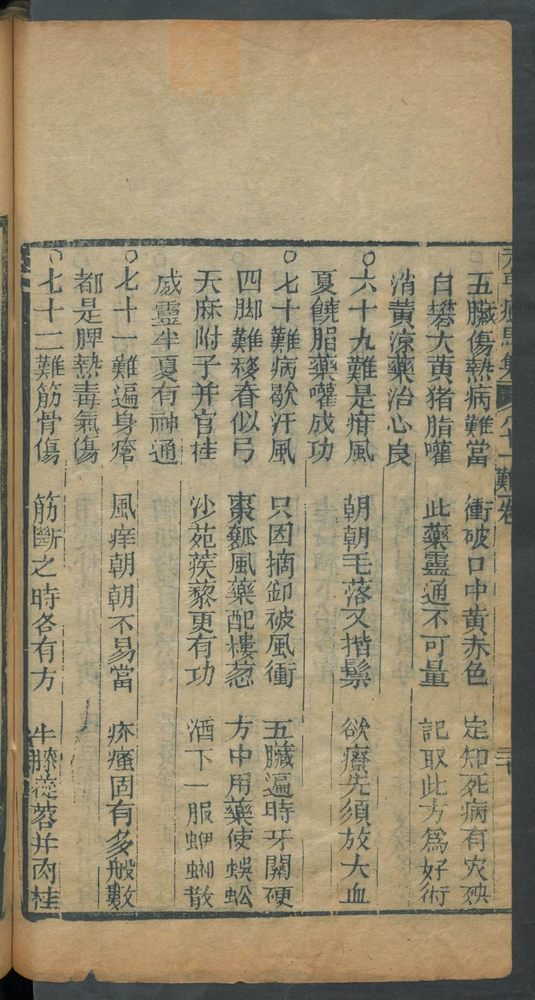 五臟傷熱病難當　衝破口中黃赤色　定知死病有灾殃
白礬大黃猪脂嚾　此藥靈通不可量　記取此方為好術
消黃涼藥治心良
○六十九難是疳風　朝朝毛落又揩鬃　欲療先須放大血
夏饒脂藥嚾成功
○七十難病歇汗風　只因摘卸被風衝　五臟遍時牙關硬
四脚難移脊似弓　棗瓤風藥配樓葱　方中用藥使蜈蚣
天麻附子并官桂　沙苑蒺藜更有功　酒下一服蝍𧍪散
威靈半夏有神通
○七十一難遍身瘡　風痒朝朝不易當　疥瘙固有多般數
都是脾熱毒氣傷
○七十二難筋骨傷　筋斷之時各有方　牛膝蓯蓉并肉桂